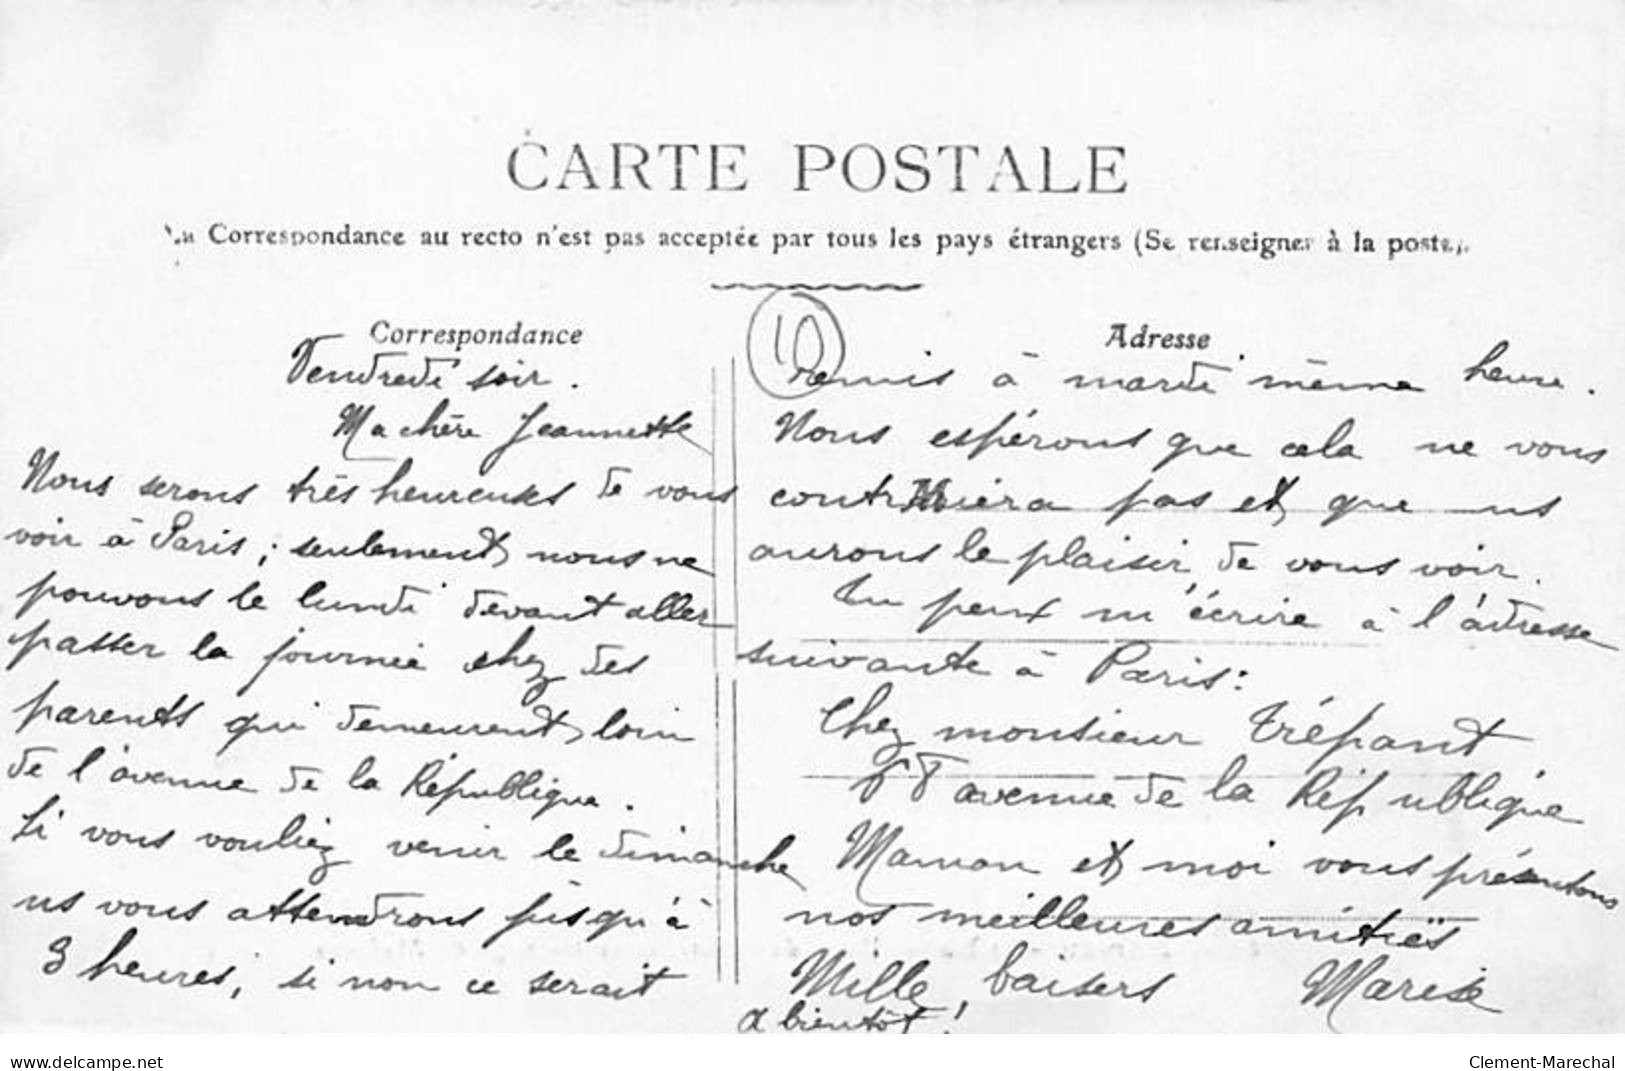 CARTE POSTALE
La Correspondance au recto n'est pas acceptée par tous les pays étrangers (Se renseigner à la poste).
Correspondance
Vendredi soir.
Ma chère Jeannette
Nous serons très heureuses de vous
voir à Paris ; seulement nous ne
pouvons le lundi devant aller
passer la journée chez des
parents qui demeurent loin
de l'avenue de la République.
Si vous vouliez venir le dimanche
ns vous attendrons jusqu'à
3 heures ; si non ce serait
10
Adresse
remis à mardi même heure.
Nous espérons que cela ne vous
contrariera pas et que ns
aurons le plaisir de vous voir.
Tu peux m'écrire à l'adresse
suivante à Paris :
Chez monsieur Trépant
avenue de la République
Maman et moi vous présentons
nos meilleures amitiés
Mille baisers Marise
à bientôt !
www.delcampe.net
Clement-Marechal